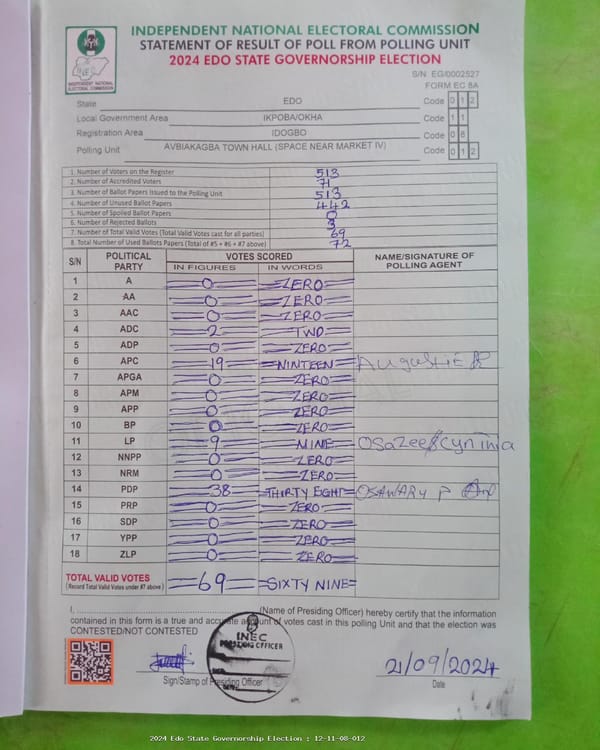 INDEPENDENT NATIONAL ELECTORAL COMMISSION
STATEMENT OF RESULT OF POLL FROM POLLING UNIT
2024 EDO STATE GOVERNORSHIP ELECTION
INEC
INDEPENDENT NATIONAL ELECTORAL COMMISSION
S/N EG/0002527
FORM EC 8A
State EDO Code 0 1 2
Local Government Area IKPOBA/OKHA Code 1 1
Registration Area IDOGBO Code 0 8
Polling Unit AVBIAKAGBA TOWN HALL (SPACE NEAR MARKET IV) Code 0 1 2
1. Number of Voters on the Register 513
2. Number of Accredited Voters 71
3. Number of Ballot Papers Issued to the Polling Unit 513
4. Number of Unused Ballot Papers 442
5. Number of Spoiled Ballot Papers 0
6. Number of Rejected Ballots 3
7. Number of Total Valid Votes (Total Valid Votes cast for all parties) 69
8. Total Number of Used Ballots Papers (Total of #5 + #6 + #7 above) 72
S/N POLITICAL PARTY VOTES SCORED NAME/SIGNATURE OF POLLING AGENT
IN FIGURES IN WORDS
1 A 0 ZERO
2 AA 0 ZERO
3 AAC 0 ZERO
4 ADC 2 TWO
5 ADP 0 ZERO
6 APC 19 NINTEEN
7 APGA 0 ZERO
8 APM 0 ZERO
9 APP 0 ZERO
10 BP 0 ZERO
11 LP 9 NINE OSaZee Cynthia
12 NNPP 0 ZERO
13 NRM 0 ZERO
14 PDP 38 THIRTY EIGHT OSAWARU P
15 PRP 0 ZERO
16 SDP 0 ZERO
17 YPP 0 ZERO
18 ZLP 0 ZERO
TOTAL VALID VOTES 69 SIXTY NINE
(Record Total Valid Votes under #7 above)
I. (Name of Presiding Officer) hereby certify that the information
contained in this form is a true and accurate account of votes cast in this polling Unit and that the election was
CONTESTED/NOT CONTESTED
INEC
PRESIDING OFFICER
DATE
21/09/2024
Sign/Stamp of Presiding Officer Date
2024 Edo State Governorship Election : 12-11-08-012